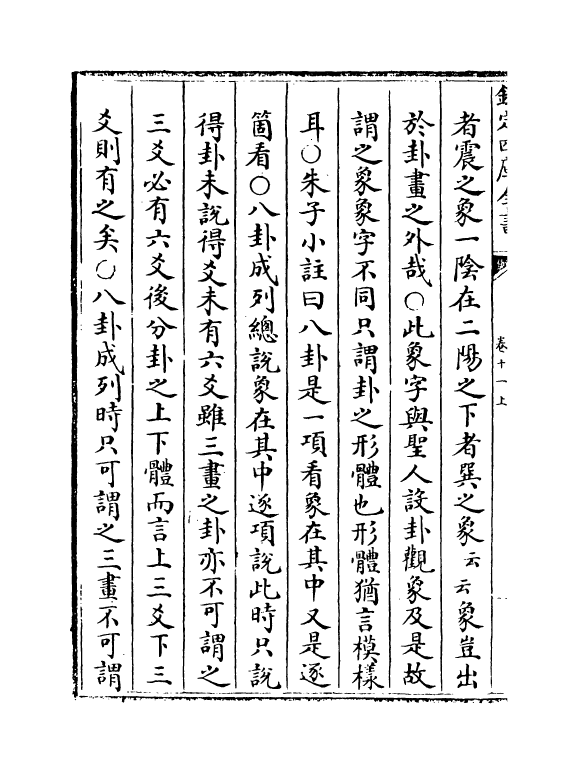 欽定四庫全書
卷十一上
者震之象一陰在二陽之下者巽之象云云象豈出
於卦畫之外哉○此象字與聖人設卦觀象及是故
謂之象象字不同只謂卦之形體也形體猶言模樣
耳○朱子小註曰八卦是一項看象在其中又是逐
箇看○八卦成列總說象在其中逐項說此時只說
得卦未說得爻未有六爻雖三畫之卦亦不可謂之
三爻必有六爻後分卦之上下體而言上三爻下三
爻則有之矣○八卦成列時只可謂之三畫不可謂